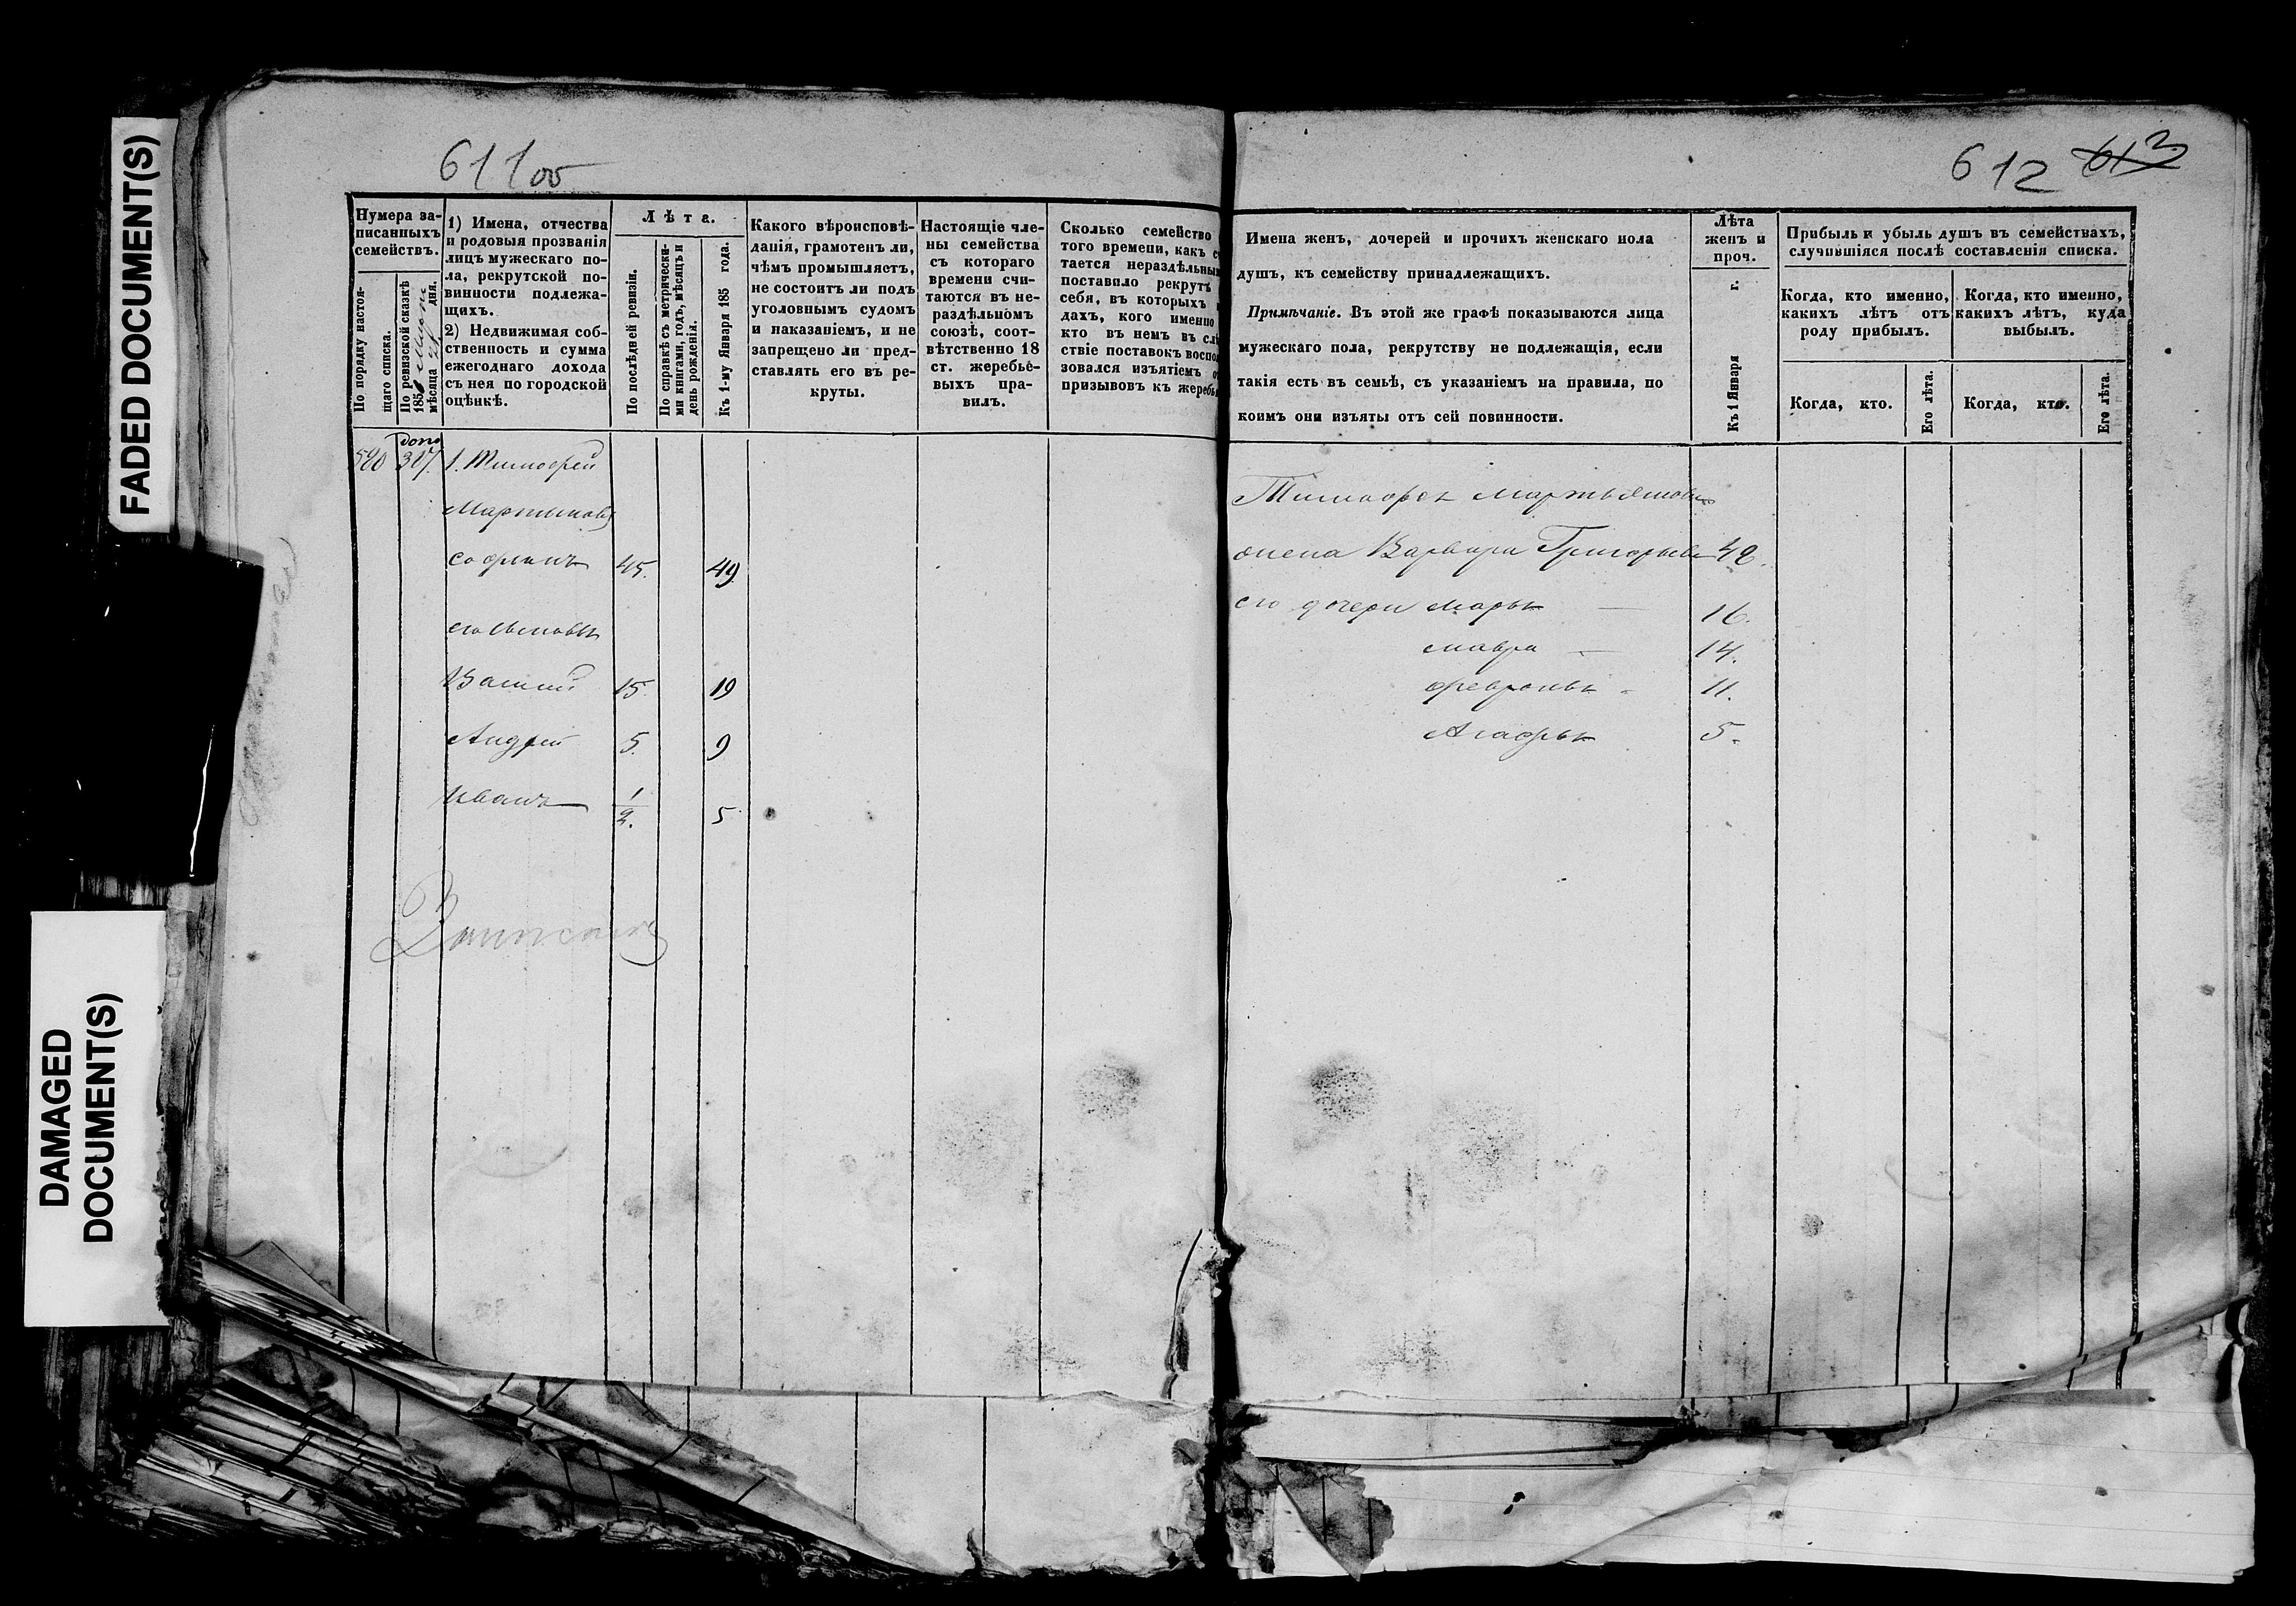 FADED DOCUMENT(S)
DAMAGED
DOCUMENT(S)
611об
Нумера за-
писанныхъ
семействъ.
По порядку настоя-
щаго списка.
По ревизской сказкѣ
185
мѣсяца дня.
1) Имена, отчества
и родовыя прозванія
лицъ мужескаго по-
ла, рекрутской по-
винности подлежа-
щихъ.
2) Недвижимая соб-
ственность и сумма
ежегоднаго дохода
съ нея по городской
оцѣнкѣ.
Лѣта.
По послѣдней ревизіи.
По справкѣ съ метрически-
ми книгами, годъ, мѣсяцъ и
день рожденія.
Къ 1-му Января 185 года.
Какого вѣроисповѣ-
данія, грамотенъ ли,
чѣмъ промышляетъ,
не состоитъ ли подъ
уголовнымъ судомъ
и наказаніемъ, и не
запрещено ли пред-
ставлять его въ ре-
круты.
Настоящіе чле-
ны семейства
съ котораго
времени счи-
таются въ не-
раздѣльномъ
союзѣ, соот-
вѣтственно 18
ст. жеребье-
выхъ пра-
вилъ.
Сколько семейство
того времени, какъ с
тается нераздѣльны
поставило рекрутъ
себя, въ которыхъ
дахъ, кого именно
кто въ немъ въ слѣ
ствіе поставокъ воспол
зовался изъятіемъ о
призывовъ къ жеребь
доп
520 307. 1. Тимофей
Мартыновъ
Софинъ 45. 49
его сыновья
Василий 15. 19
Андрей 5. 9
Иванъ 1/2. 5
612 613
Имена женъ, дочерей и прочихъ женскаго пола
душъ, къ семейству принадлежащихъ.
Примѣчаніе. Въ этой же графѣ показываются лица
мужескаго пола, рекрутству не подлежащія, если
такія есть въ семьѣ, съ указаніемъ на правила, по
коимъ они изъяты отъ сей повинности.
Лѣта
женъ и
проч.
Къ 1 Января г.
Прибыль и убыль душъ въ семействахъ,
случившіяся послѣ составленія списка.
Когда, кто именно,
какихъ лѣтъ отъ
роду прибылъ.
Когда, кто именно,
какихъ лѣтъ, куда
выбылъ.
Когда, кто.
Его лѣта.
Когда, кто.
Его лѣта.
Тимофея Мартьянова
жена Варвара Григорьева 42.
его дочери Марья 16.
Мавра 14.
Февронья 11.
Агафья 5.